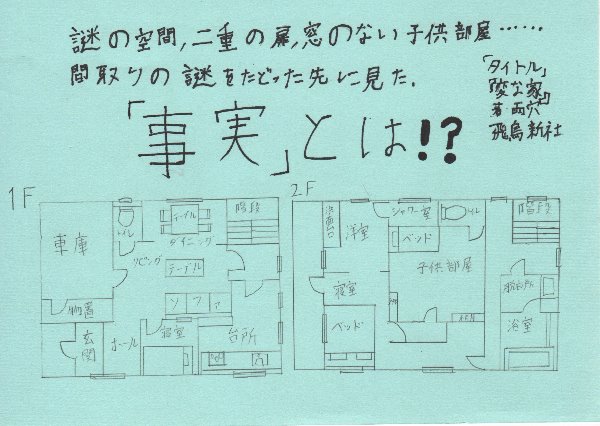 謎の空間,二重の扉,窓のない子供部屋……
間取りの謎をたどった先に見た.
「事実」とは!?
「タイトル」
「変な家」
著・雨穴
飛鳥新社
1F
車庫
トイレ
テーブル
階段
ダイニング
リビング
テーブル
ソファ
物置
玄関
ホール
寝室
台所
2F
洗面台
洋室
シャワー室
トイレ
階段
ベッド
子供部屋
寝室
脱衣所
ベッド
浴室